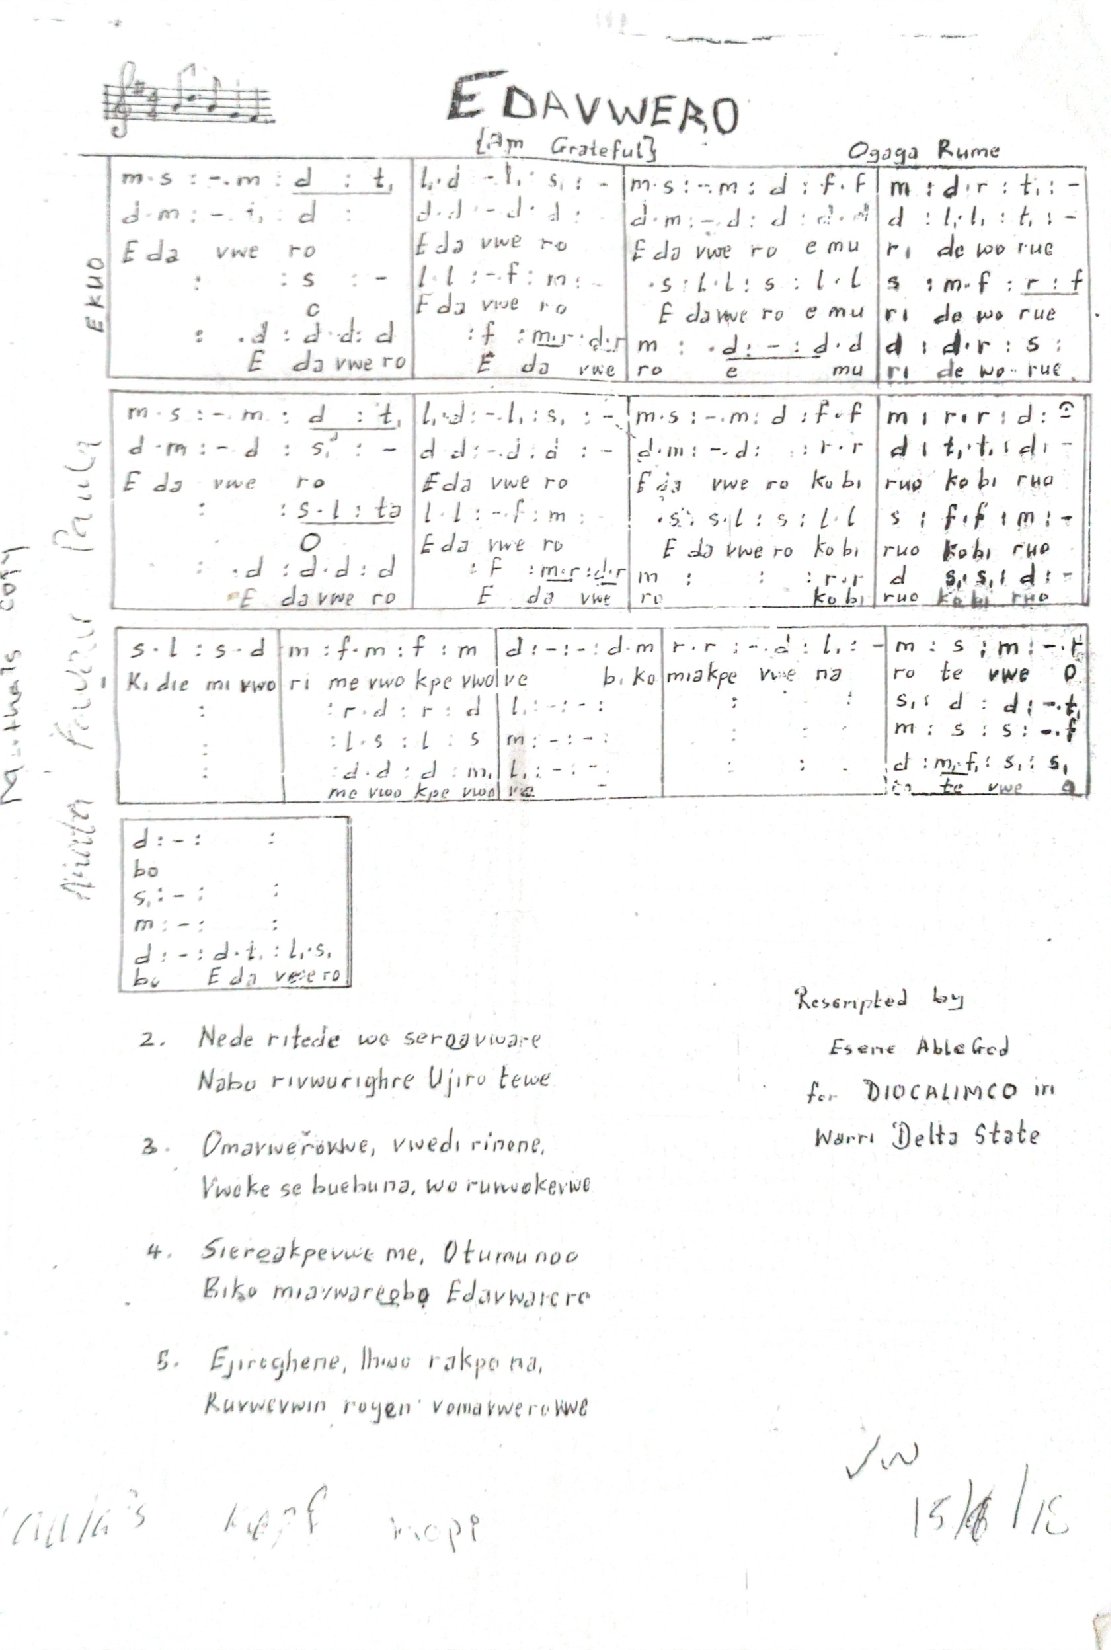 EDAVWERO
{Am Grateful}
Ogaga Rume
EKUO
m.s : -.m : d : t, | l,.d : -.l, : s, : - | m.s : -.m : d : f.f | m : d.r : t, : -
d.m : -. : d : | d.d : -.d : d : | d.m : -.d : d : d.d | d : l,.l, : t, : -
E da vwe ro | E da vwe ro | E da vwe ro e mu | ri de wo rue
: : s : - | l.l : -.f : m : - | .s : l.l : s : l.l | s : m.f : r : f
E da vwe ro | E da vwe ro e mu | ri de wo rue
: .d : d.d : d | : f : m.r : d.r | m : .d : - : d.d | d : d.r : s :
E da vwe ro | E da vwe | ro e mu | ri de wo rue
m.s : -.m : d : t, | l,.d : -.l, : s, : - | m.s : -.m : d : f.f | m : r.r : d :
d.m : -.d : s, : - | d d : -.d : d : - | d.m : -.d : : r.r | d : t,.t, : d : -
E da vwe ro | E da vwe ro | E da vwe ro ko bi | ruo ko bi ruo
: : s.l : ta | l.l : -.f : m : - | .s : s.l : s : l.l | s : f.f : m : -
O | E da vwe ro | E da vwe ro ko bi | ruo ko bi ruo
: .d : d.d : d | : f : m.r : d.r | m : : : r.r | d s,.s, : d : -
E da vwe ro | E da vwe | ro ko bi | ruo ko bi ruo
s.l : s.d | m : f.m : f : m | d : - : - : d.m | r.r : -.d : l, : - | m : s : m : -.f
Ki die mi vwo | ri me vwo kpe vwo | ve bi ko | mia kpe vwe na | ro te vwe O
: | : r.d : r : d | l, : - : - : | : : | s, : d : d : -.t,
: | : l.s : l : s | m : - : - : | : : | m : s : s : -.f
: | : d.d : d : m, | l, : - : - | : : | d : m,.f, : s, : s,
me vwo kpe vwo | ve | ro te vwe O
d : - : :
bo
s, : - : :
m : - : :
d : - : d.t, : l,.s,
bo E da vwe ro
2. Nede ritede wo seroavware
Nabo rivwurighre Ujiro tewe
3. Omavwerovwe, vwedi rinone,
Vweke se buebuna, wo ruvwokevwe
4. Siereakpevwe me, Otumu noo
Biko miavwareobo Edavwarere
5. Ejiroghene, Ihwo rakpo na,
Ruvwevwin royen vomavwerovwe
Rescripted by
Esene AbleGod
for DIOCALIMCO in
Warri Delta State
copy
15/ /18